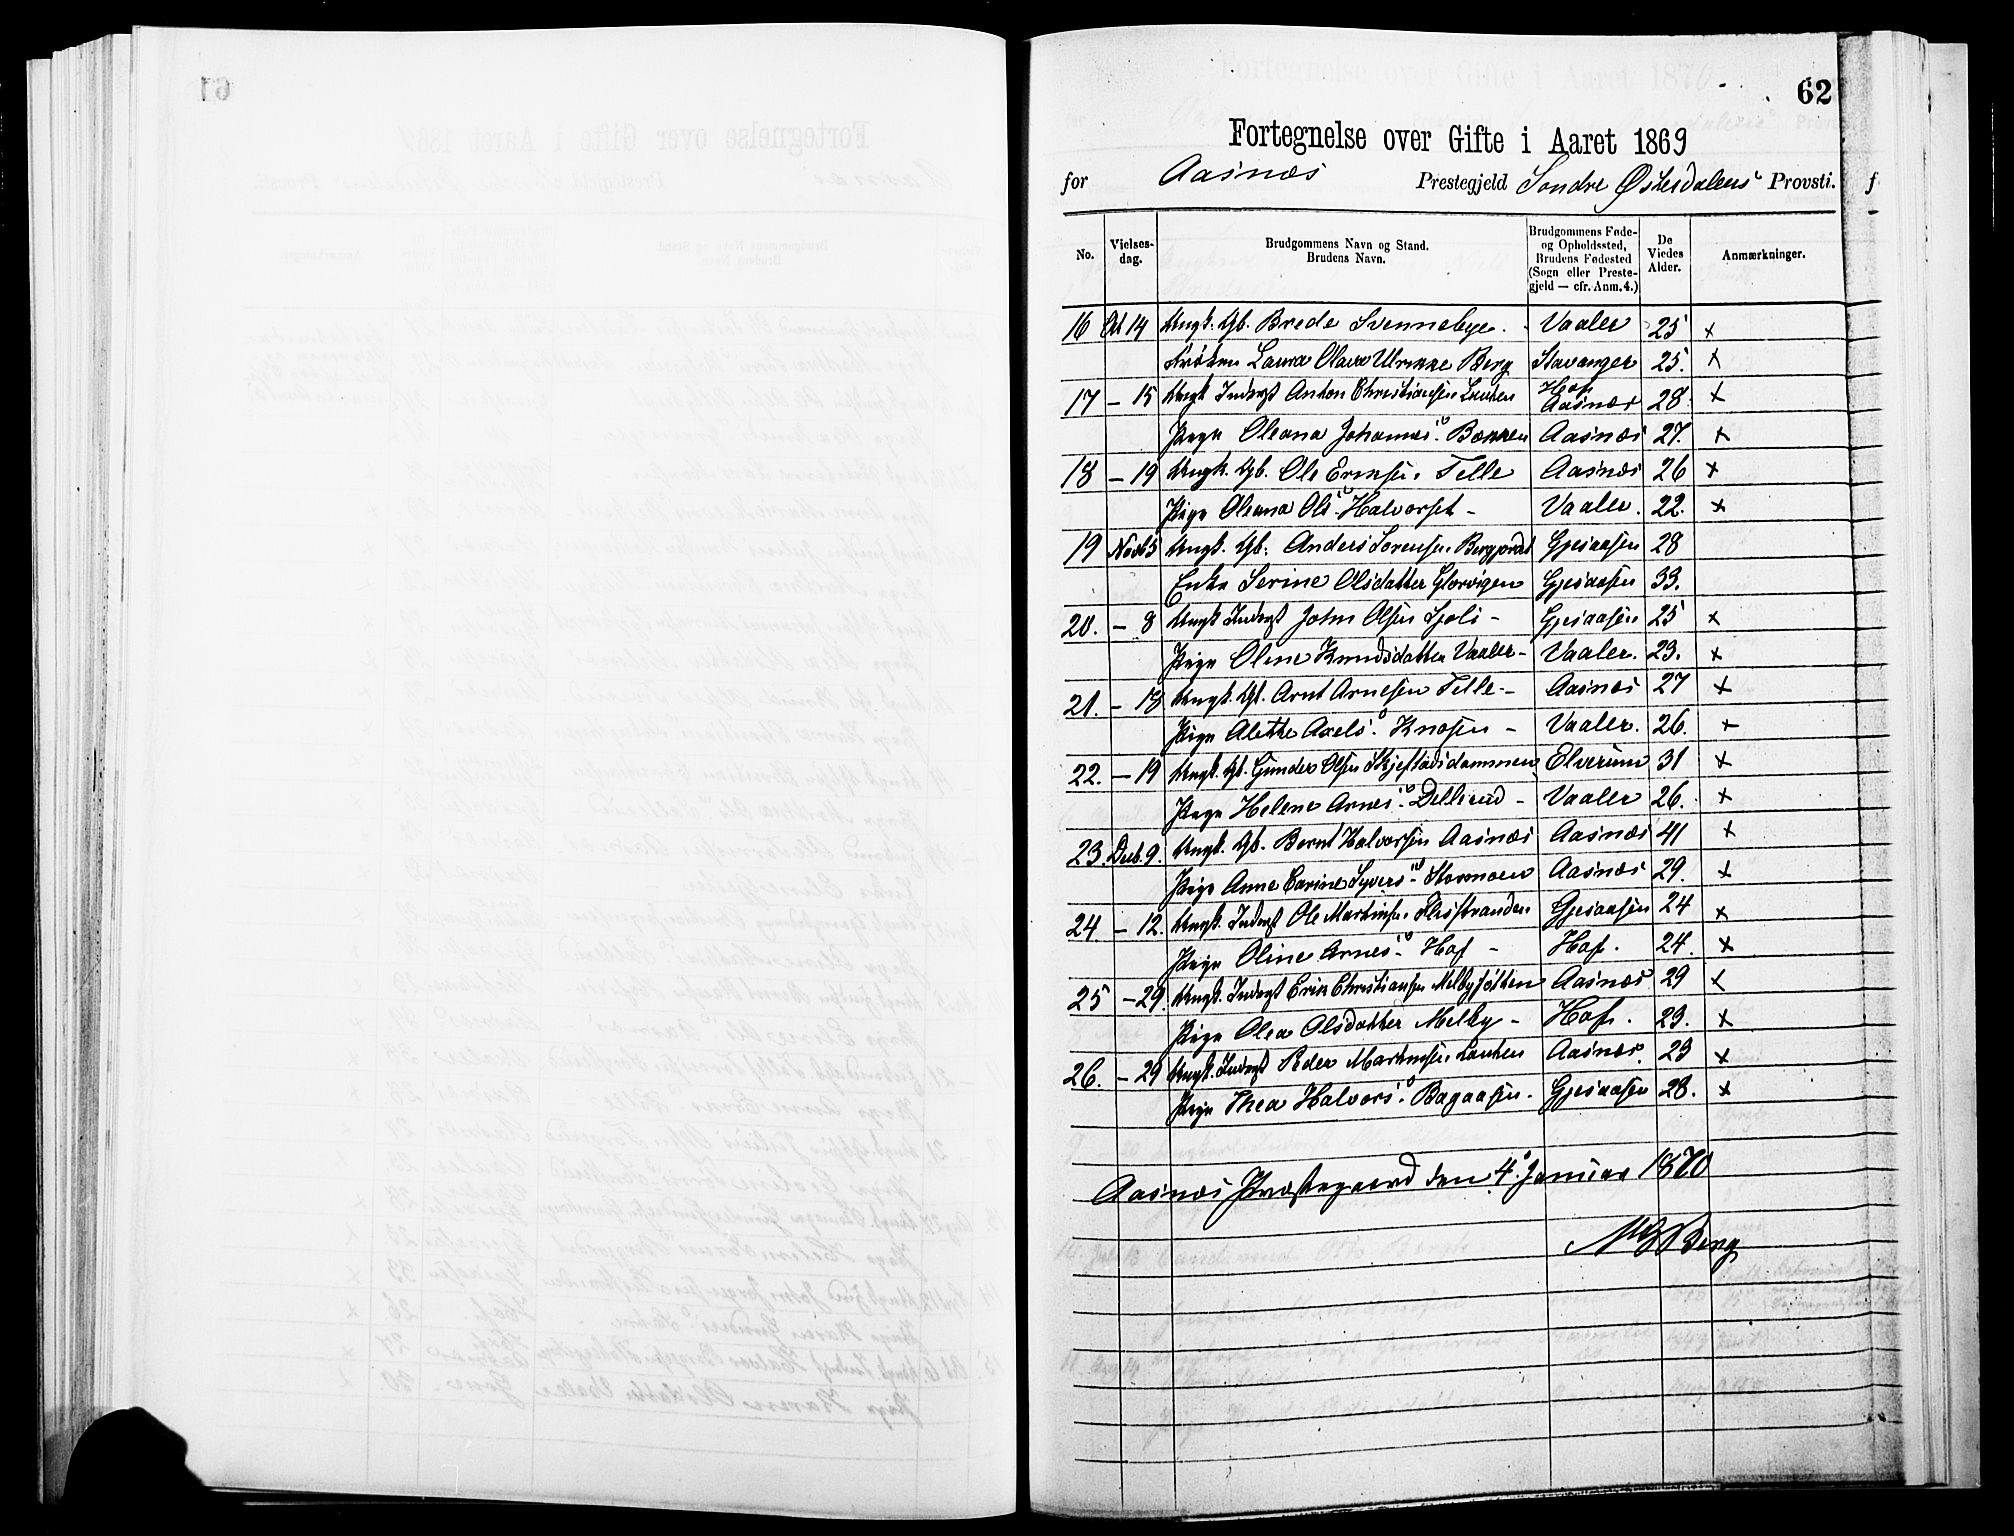 62
Fortegnelse over Gifte i Aaret 1869
for Aasnæs Prestegjeld Söndre Østerdalens Provsti.
No. Vielses-dag. Brudgommens Navn og Stand. Brudens Navn. Brudgommens Føde- og Opholdssted, Brudens Fødested (Sogn eller Preste-gjeld — cfr. Anm. 4.) De Viedes Alder. Anmærkninger.
16 Oct 14 Ungk. Gb. Brede Svennebye. Vaaler 25 x
Frøken Laura Olava Ulrikke Berg Stavanger 25. x
17 – 15 Ungk Inderst Anton Christiansen Lauten Hof Aasnæs 28 x
Pige Oleana Johannesd. Bakken Aasnæs 27. x
18 – 19 Ungk. Gb. Ole Eriksen Telle Aasnæs 26 x
Pige Oleana Olsd. Halvorset – Vaaler. 22. x
19 Novb 5 Ungk. Gb. Anders Sorensen Berggrdet Gjesaasen 28
Enke Serine Olsdatter Glorvigen Gjesaasen 33.
20. – 8 Ungk Inderst John Olsen Sjoli – Gjesaasen 25 x
Pige Oline Knudsdatter Vaaler – Vaaler. 23. x
21. – 18 Ungk. Gb. Arnt Arnesen Telle – Aasnæs 27 x
Pige Alethe Axelsd. Knasen – Vaaler. 26. x
22. – 19 Ungk. Gb. Gunder Olsen Skjeftadsdammen Elverum 31 x
Pige Helene Arnesd. Dellerud – Vaaler 26. x
23. Decb. 9. Ungk. Gb. Bernt Halvorsen Aasnæs Aasnæs 41 x
Pige Anne Carine Syversd. Stormoen Aasnæs 29. x
24. – 12. Ungk. Inderst Ole Martinsen Flisstranden Gjesaasen 24 x
Pige Oline Arnesd. Hof – Hof. 24. x
25 – 29. Ungk. Inderst Erik Christiansen Melbyfølten Aasnæs 29 x
Pige Olea Olsdatter Melby – Hof. 23. x
26. – 29 Ungk. Inderst Peder Martinsen Lauten Aasnæs. 23 x
Pige Thea Halvorsd. Bagaasen. Gjesaasen 28. x
Aasnæs Præstegaard den 4. Januar 1870
Berg